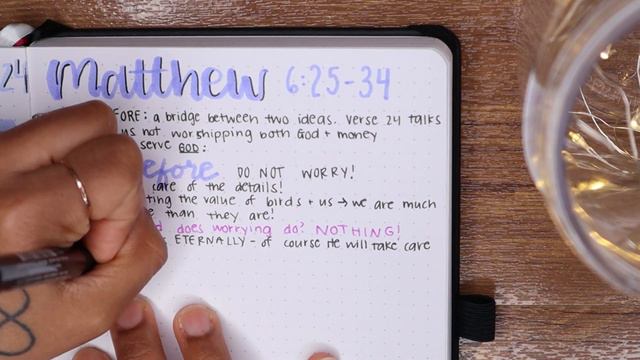 24 Matthew 6:25-34
FORE: a bridge between two ideas. Verse 24 talks
us not worshipping both God + money
serve GOD:
efore DO NOT WORRY!
care of the details!
ting the value of birds + us → we are much
than they are!
does worrying do? NOTHING!
ETERNALLY - of course He will take care